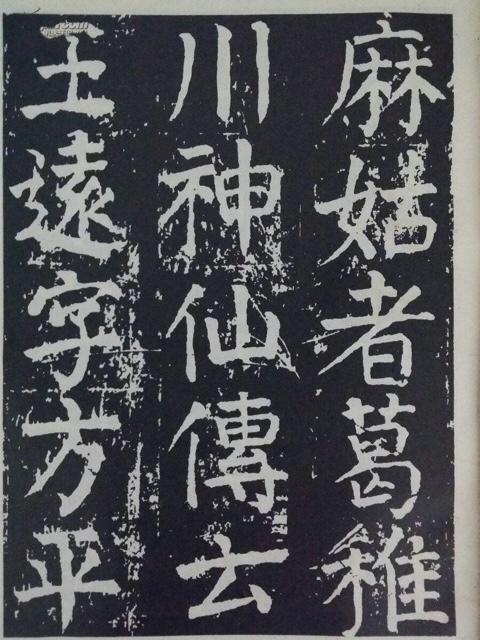 麻姑者葛稚
川神仙傳云
王遠字方平